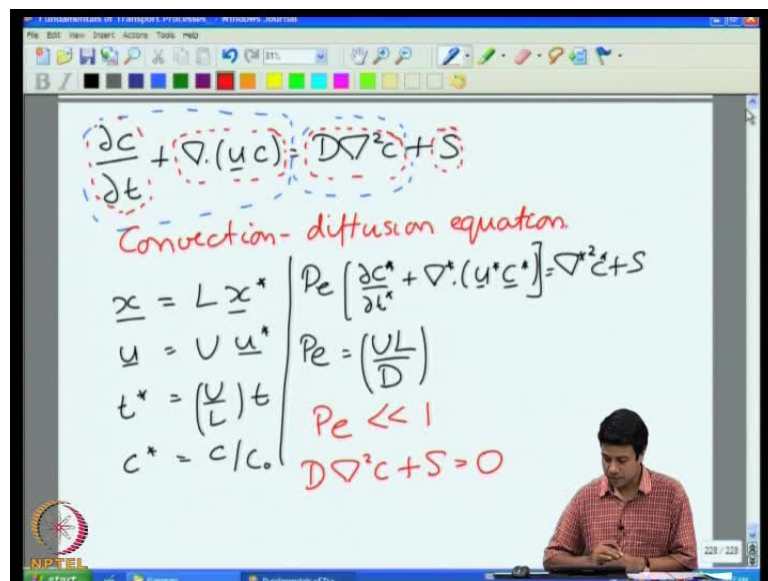 Fundamentals of Transport Processes_ - Windows Journal
File Edit View Insert Actions Tools Help
81%
B I
∂c/∂t + ∇.(u c) = D∇²c + S
Convection-diffusion equation.
x = L x*
u = U u*
t* = (U/L) t
c* = c/c₀
Pe [∂c*/∂t* + ∇*.(u* c*)] = ∇*²c* + S
Pe = (UL/D)
Pe << 1
D∇²c + S = 0
NPTEL
228 / 228
start